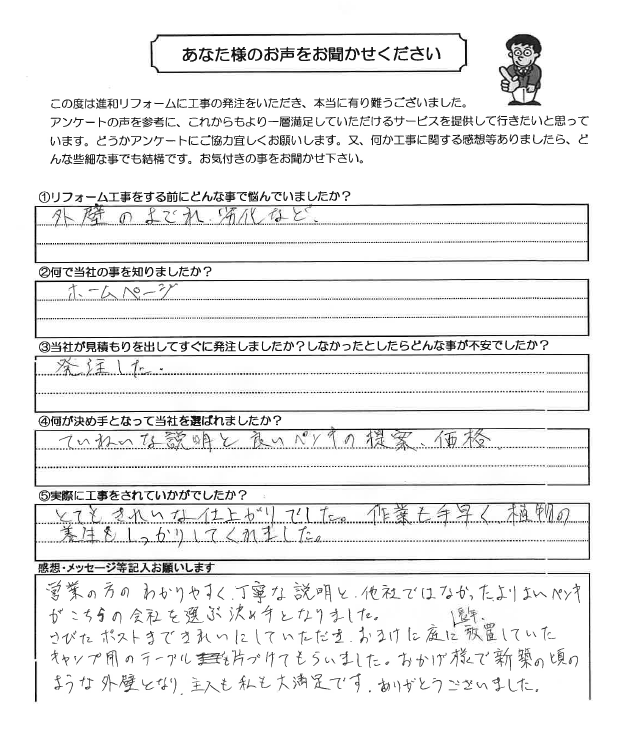 あなた様のお声をお聞かせください
この度は進和リフォームに工事の発注をいただき、本当に有り難うございました。
アンケートの声を参考に、これからもより一層満足していただけるサービスを提供して行きたいと思って
います。どうかアンケートにご協力宜しくお願いします。又、何か工事に関する感想等ありましたら、ど
んな些細な事でも結構です。お気付きの事をお聞かせ下さい。
①リフォーム工事をする前にどんな事で悩んでいましたか？
外壁のよごれ、劣化など、
②何で当社の事を知りましたか？
ホームページ
③当社が見積もりを出してすぐに発注しましたか？しなかったとしたらどんな事が不安でしたか？
発注した．
④何が決め手となって当社を選ばれましたか？
ていねいな説明と良いペンキの提案、価格、
⑤実際に工事をされていかがでしたか？
とてもきれいな仕上がりでした。作業も手早く、植物の
養生もしっかりしてくれました。
感想・メッセージ等記入お願いします
営業の方のわかりやすく、丁寧な説明と、他社ではなかったよりよいペンキ
がこちらの会社を選ぶ決め手となりました。
さびたポストまできれいにしていただき、おまけに庭に長年、放置していた
キャンプ用のテーブルを片づけてもらいました。おかげ様で新築の頃の
ような外壁となり、主人も私も大満足です．ありがとうございました。